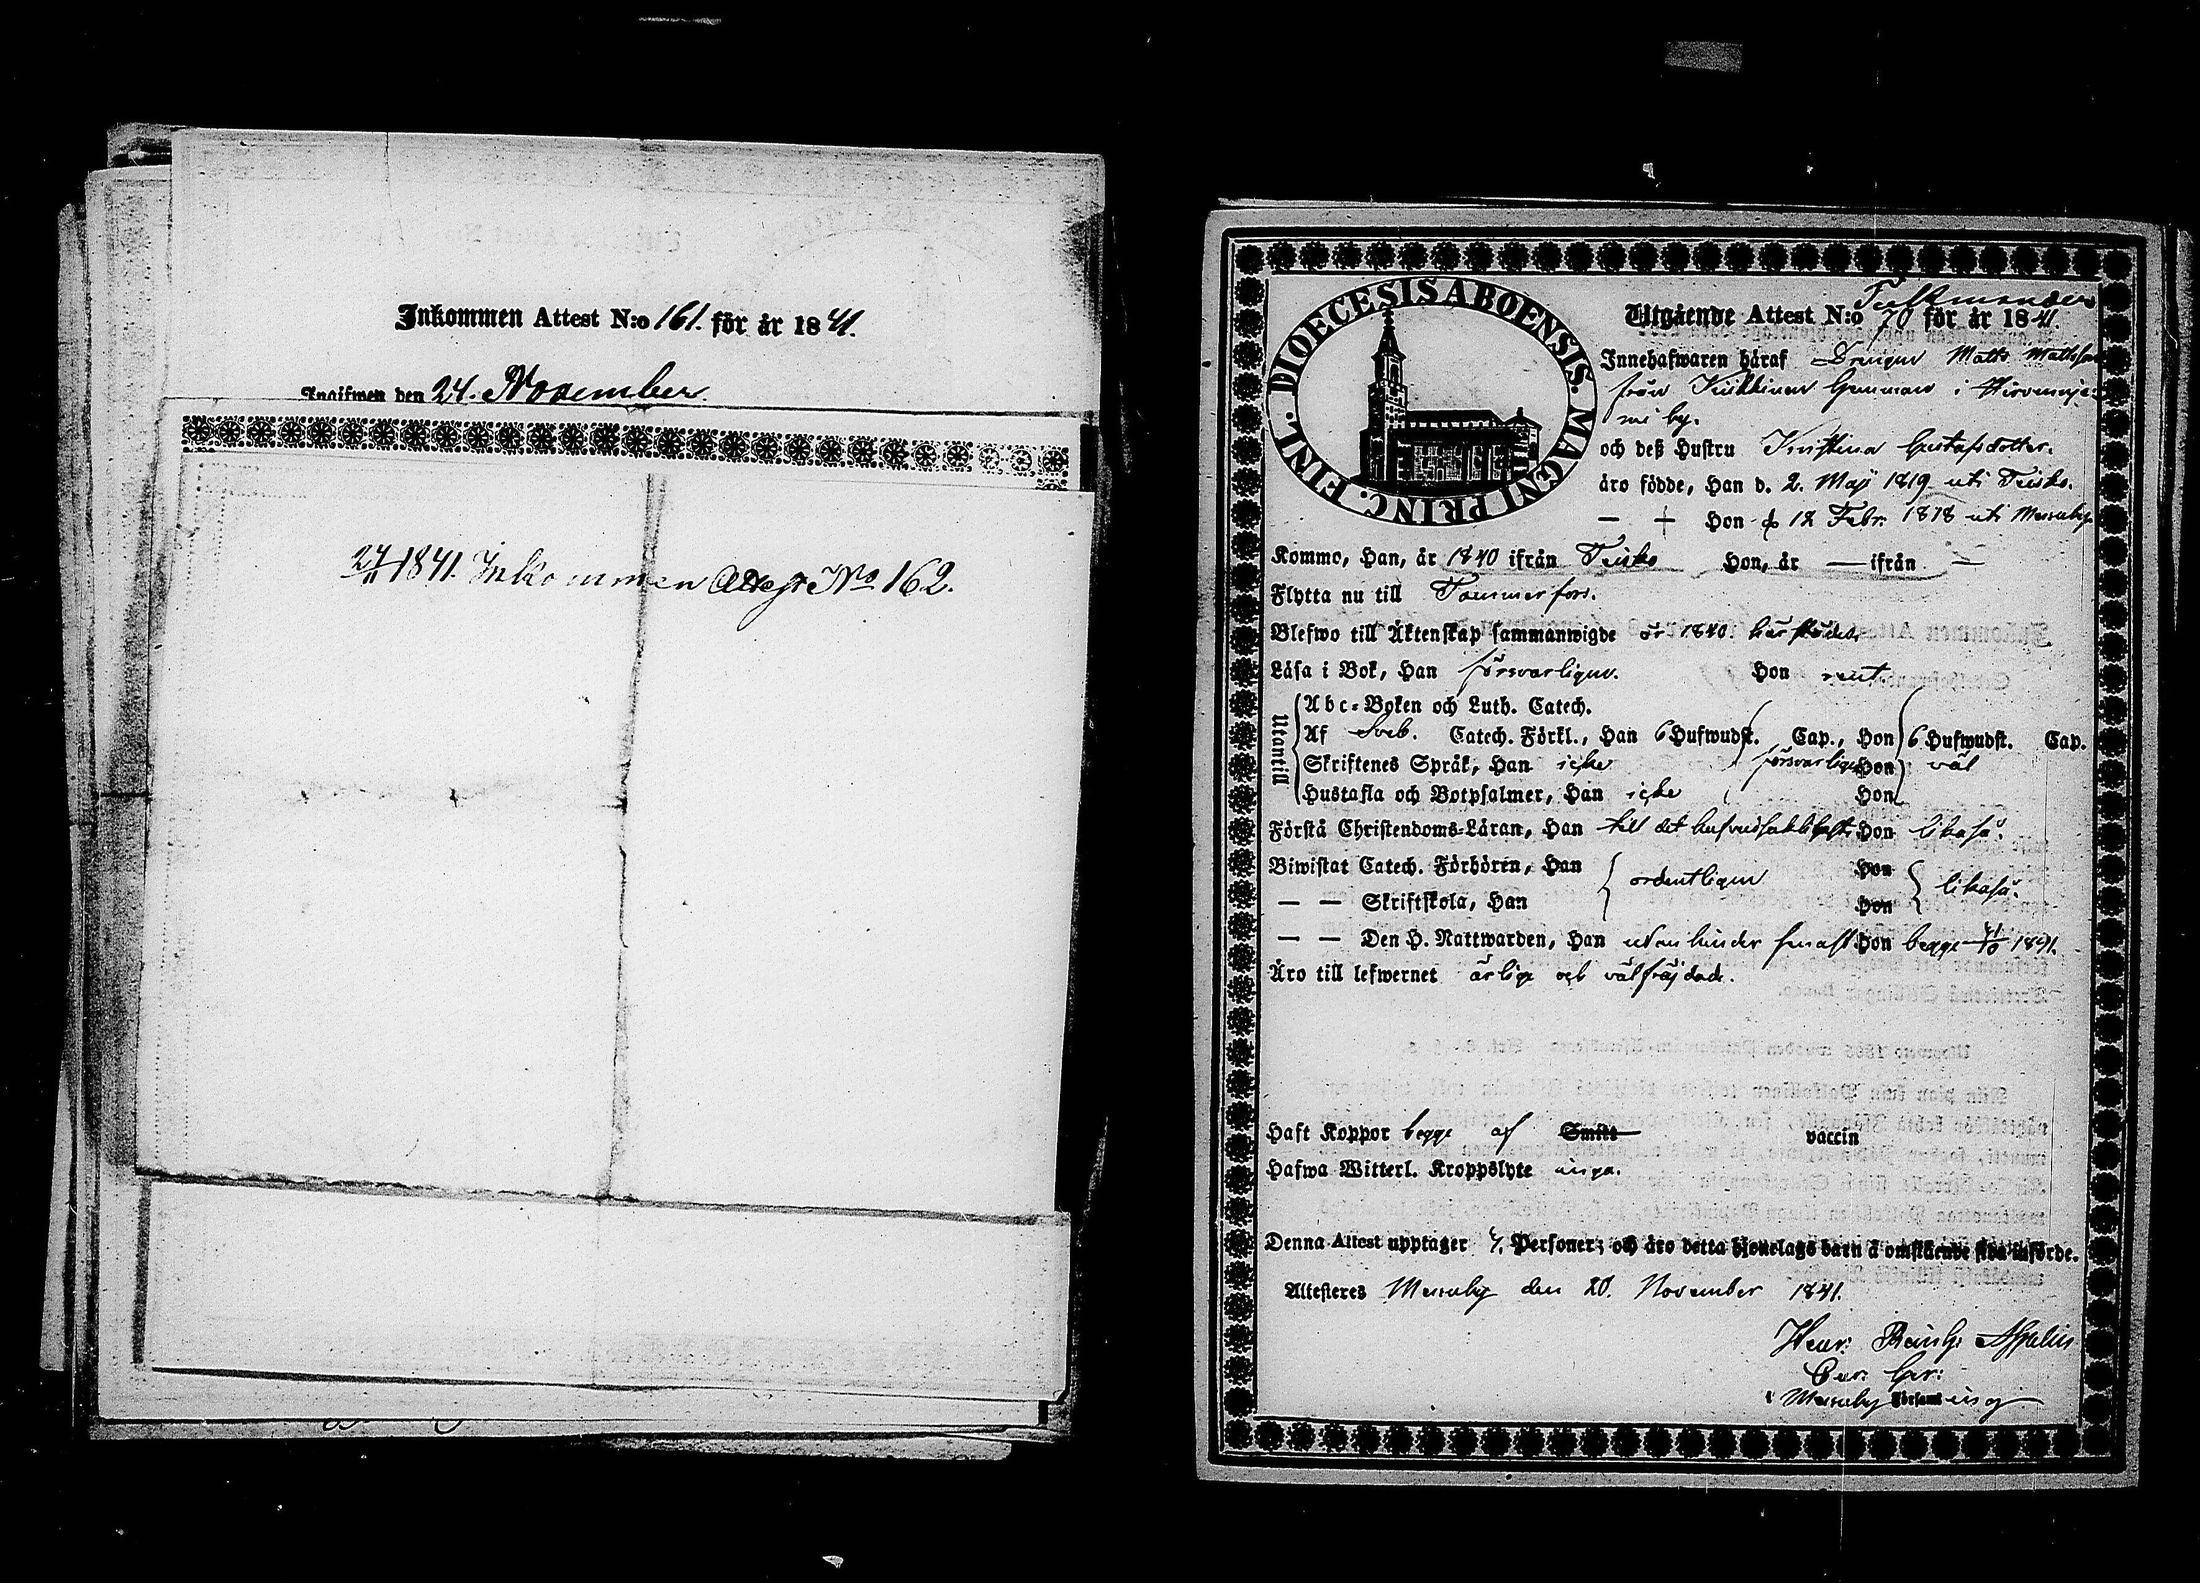 Inkommen Attest N:o 161. för år 1841.
Ingifwen den 24. November.
24/11 1841. Inkommen Attest No 162.
DIOECESIS ABOENSIS. MAGNI PRINC. FINL.
Utgående Attest N:o 70 för år 1841.
Innehafwaren häraf Drengen Matts Mattsson
från Gumman i
by.
och deß Hustru Kristina Gustafsdotter.
äro födde, Han d. 2. Maji 1819 uti Teisko.
— + Hon d 12 Febr. 1818 uti Messuby
Kommo, Han, år 1840 ifrån Teisko Hon, år — ifrån —
Flytta nu till Tammerfors.
Blefwo till Äktenskap sammanwigde år 1840. härstädes.
Läsa i Bok, Han försvarligen. Hon rent.
Utantill
Abc-Boken och Luth. Catech.
Af Sveb. Catech. Förkl., Han 6 Hufwudst. Cap., Hon 6 Hufwudst. Cap.
Skriftenes Språk, Han icke försvarligen Hon väl
Hustafla och Botpsalmer, Han icke Hon
Förstå Christendoms-Läran, Han till det hufvudsakligaste Hon likaså.
Biwistat Catech. Förhören, Han ordentligen Hon likaså.
— — Skriftskola, Han Hon
— — Den H. Nattwarden, Han utan hinder senast Hon begge 1841.
Äro till lefwernet ärlige och välfräjdade.
Haft Koppor begge af Smitt vaccin
Hafwa Witterl. Kroppslyte inga.
Denna Attest upptager Personer; och äro detta hjonelags barn å omstående sida införde.
Attesteres Messuby den 20. November 1841.
Henr: Reinh: Appelin
i Messuby Församling